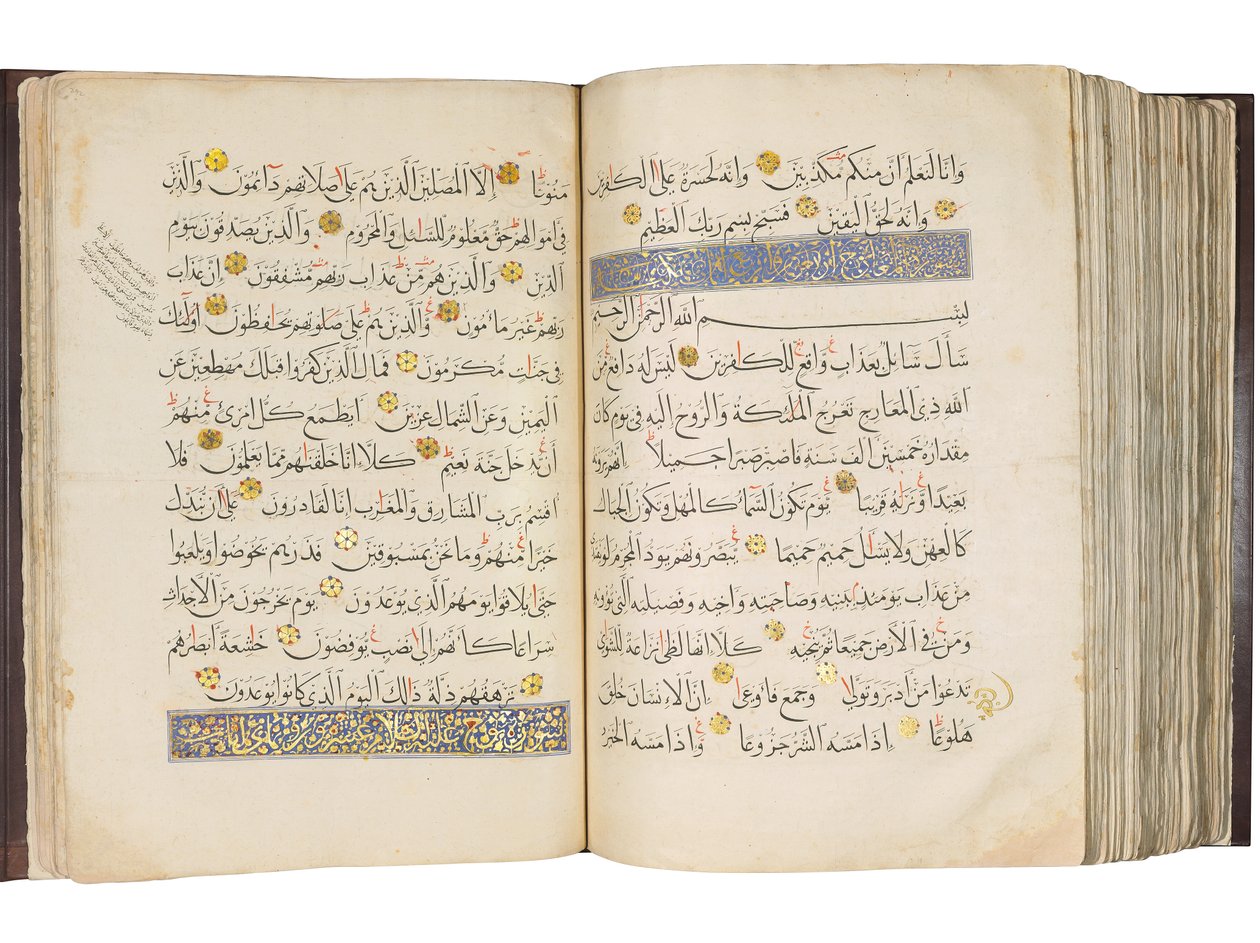 وَإِنَّا لَنَعْلَمُ أَنَّ مِنكُم مُّكَذِّبِينَ وَإِنَّهُ لَحَسْرَةٌ عَلَى الْكَافِرِينَ
وَإِنَّهُ لَحَقُّ الْيَقِينِ فَسَبِّحْ بِسْمِ رَبِّكَ الْعَظِيمِ
بِسْمِ اللهِ الرَّحْمٰنِ الرَّحِيمِ
سَأَلَ سَائِلٌ بِعَذَابٍ وَاقِعٍ لِّلْكَافِرِينَ لَيْسَ لَهُ دَافِعٌ مِّنَ
اللهِ ذِي الْمَعَارِجِ تَعْرُجُ الْمَلٰئِكَةُ وَالرُّوحُ إِلَيْهِ فِي يَوْمٍ كَانَ
مِقْدَارُهُ خَمْسِينَ أَلْفَ سَنَةٍ فَاصْبِرْ صَبْرًا جَمِيلًا إِنَّهُمْ يَرَوْنَهُ
بَعِيدًا وَّنَرٰهُ قَرِيبًا يَوْمَ تَكُونُ السَّمَاءُ كَالْمُهْلِ وَتَكُونُ الْجِبَالُ
كَالْعِهْنِ وَلَا يَسْأَلُ حَمِيمٌ حَمِيمًا يُبَصَّرُونَهُمْ يَوَدُّ الْمُجْرِمُ لَوْ يَفْتَدِي
مِنْ عَذَابِ يَوْمَئِذٍ بِبَنِيهِ وَصَاحِبَتِهِ وَأَخِيهِ وَفَصِيلَتِهِ الَّتِي تُؤْوِيهِ
وَمَنْ فِي الْأَرْضِ جَمِيعًا ثُمَّ يُنْجِيهِ كَلَّا إِنَّهَا لَظَىٰ نَزَّاعَةً لِّلشَّوَىٰ
تَدْعُوا مَنْ أَدْبَرَ وَتَوَلَّىٰ وَجَمَعَ فَأَوْعَىٰ إِنَّ الْإِنْسَانَ خُلِقَ
هَلُوعًا إِذَا مَسَّهُ الشَّرُّ جَزُوعًا وَّإِذَا مَسَّهُ الْخَيْرُ
مَنُوعًا إِلَّا الْمُصَلِّينَ الَّذِينَ هُمْ عَلَىٰ صَلَاتِهِمْ دَائِمُونَ وَالَّذِينَ
فِي أَمْوَالِهِمْ حَقٌّ مَّعْلُومٌ لِّلسَّائِلِ وَالْمَحْرُومِ وَالَّذِينَ يُصَدِّقُونَ بِيَوْمِ
الدِّينِ وَالَّذِينَ هُمْ مِّنْ عَذَابِ رَبِّهِمْ مُّشْفِقُونَ إِنَّ عَذَابَ
رَبِّهِمْ غَيْرُ مَأْمُونٍ وَّالَّذِينَ هُمْ عَلَىٰ صَلَوٰتِهِمْ يُحَافِظُونَ أُولٰئِكَ
فِي جَنَّاتٍ مُّكْرَمُونَ فَمَالِ الَّذِينَ كَفَرُوا قِبَلَكَ مُهْطِعِينَ عَنِ
الْيَمِينِ وَعَنِ الشِّمَالِ عِزِينَ أَيَطْمَعُ كُلُّ امْرِئٍ مِّنْهُمْ
أَنْ يُدْخَلَ جَنَّةَ نَعِيمٍ كَلَّا إِنَّا خَلَقْنَاهُمْ مِّمَّا يَعْلَمُونَ فَلَا
أُقْسِمُ بِرَبِّ الْمَشَارِقِ وَالْمَغَارِبِ إِنَّا لَقَادِرُونَ عَلَىٰ أَنْ نُّبَدِّلَ
خَيْرًا مِّنْهُمْ وَمَا نَحْنُ بِمَسْبُوقِينَ فَذَرْهُمْ يَخُوضُوا وَيَلْعَبُوا
حَتَّىٰ يُلَاقُوا يَوْمَهُمُ الَّذِي يُوعَدُونَ يَوْمَ يَخْرُجُونَ مِنَ الْأَجْدَاثِ
سِرَاعًا كَأَنَّهُمْ إِلَىٰ نُصُبٍ يُوفِضُونَ خَاشِعَةً أَبْصَارُهُمْ
تَرْهَقُهُمْ ذِلَّةٌ ذَالِكَ الْيَوْمُ الَّذِي كَانُوا يُوعَدُونَ
سورة نوح عليه السلام